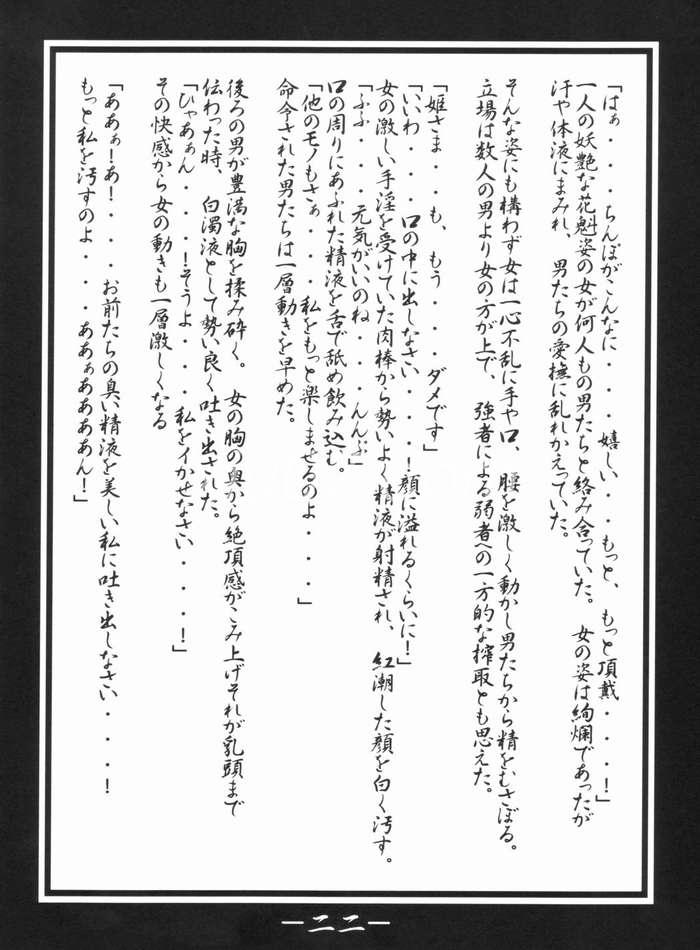 「はぁ・・・ちんぽがこんなに・・・嬉しい・・もっと、もっと頂戴・・・！」
一人の妖艶な花魁姿の女が何人もの男たちと絡み合っていた。女の姿は絢爛であったが
汗や体液にまみれ、男たちの愛撫に乱れかえっていた。
そんな姿にも構わず女は一心不乱に手や口、腰を激しく動かし男たちから精をむさぼる。
立場は数人の男より女の方が上で、強者による弱者への一方的な搾取とも思えた。
「姫さま・・も、もう・・・ダメです」
「いいわ・・・口の中に出しなさい・・・！顔に溢れるくらいに！」
女の激しい手淫を受けていた肉棒から勢いよく精液が射精され、紅潮した顔を白く汚す。
「ふふ・・・元気がいいのね・・・んんぶ」
口の周りにあふれた精液を舌で舐め飲み込む。
「他のモノもさぁ・・・私をもっと楽しませるのよ・・・」
命令された男たちは一層動きを早めた。
後ろの男が豊満な胸を揉み砕く。女の胸の奥から絶頂感がこみ上げそれが乳頭まで
伝わった時、白濁液として勢い良く吐き出された。
「ひゃあぁん・・・！そうよ・・・私をイかせなさい・・・！」
その快感から女の動きも一層激しくなる
「ああぁ！あ！・・・お前たちの臭い精液を美しい私に吐き出しなさい・・・！
もっと私を汚すのよ・・・あああぁああああん！」
－二二－